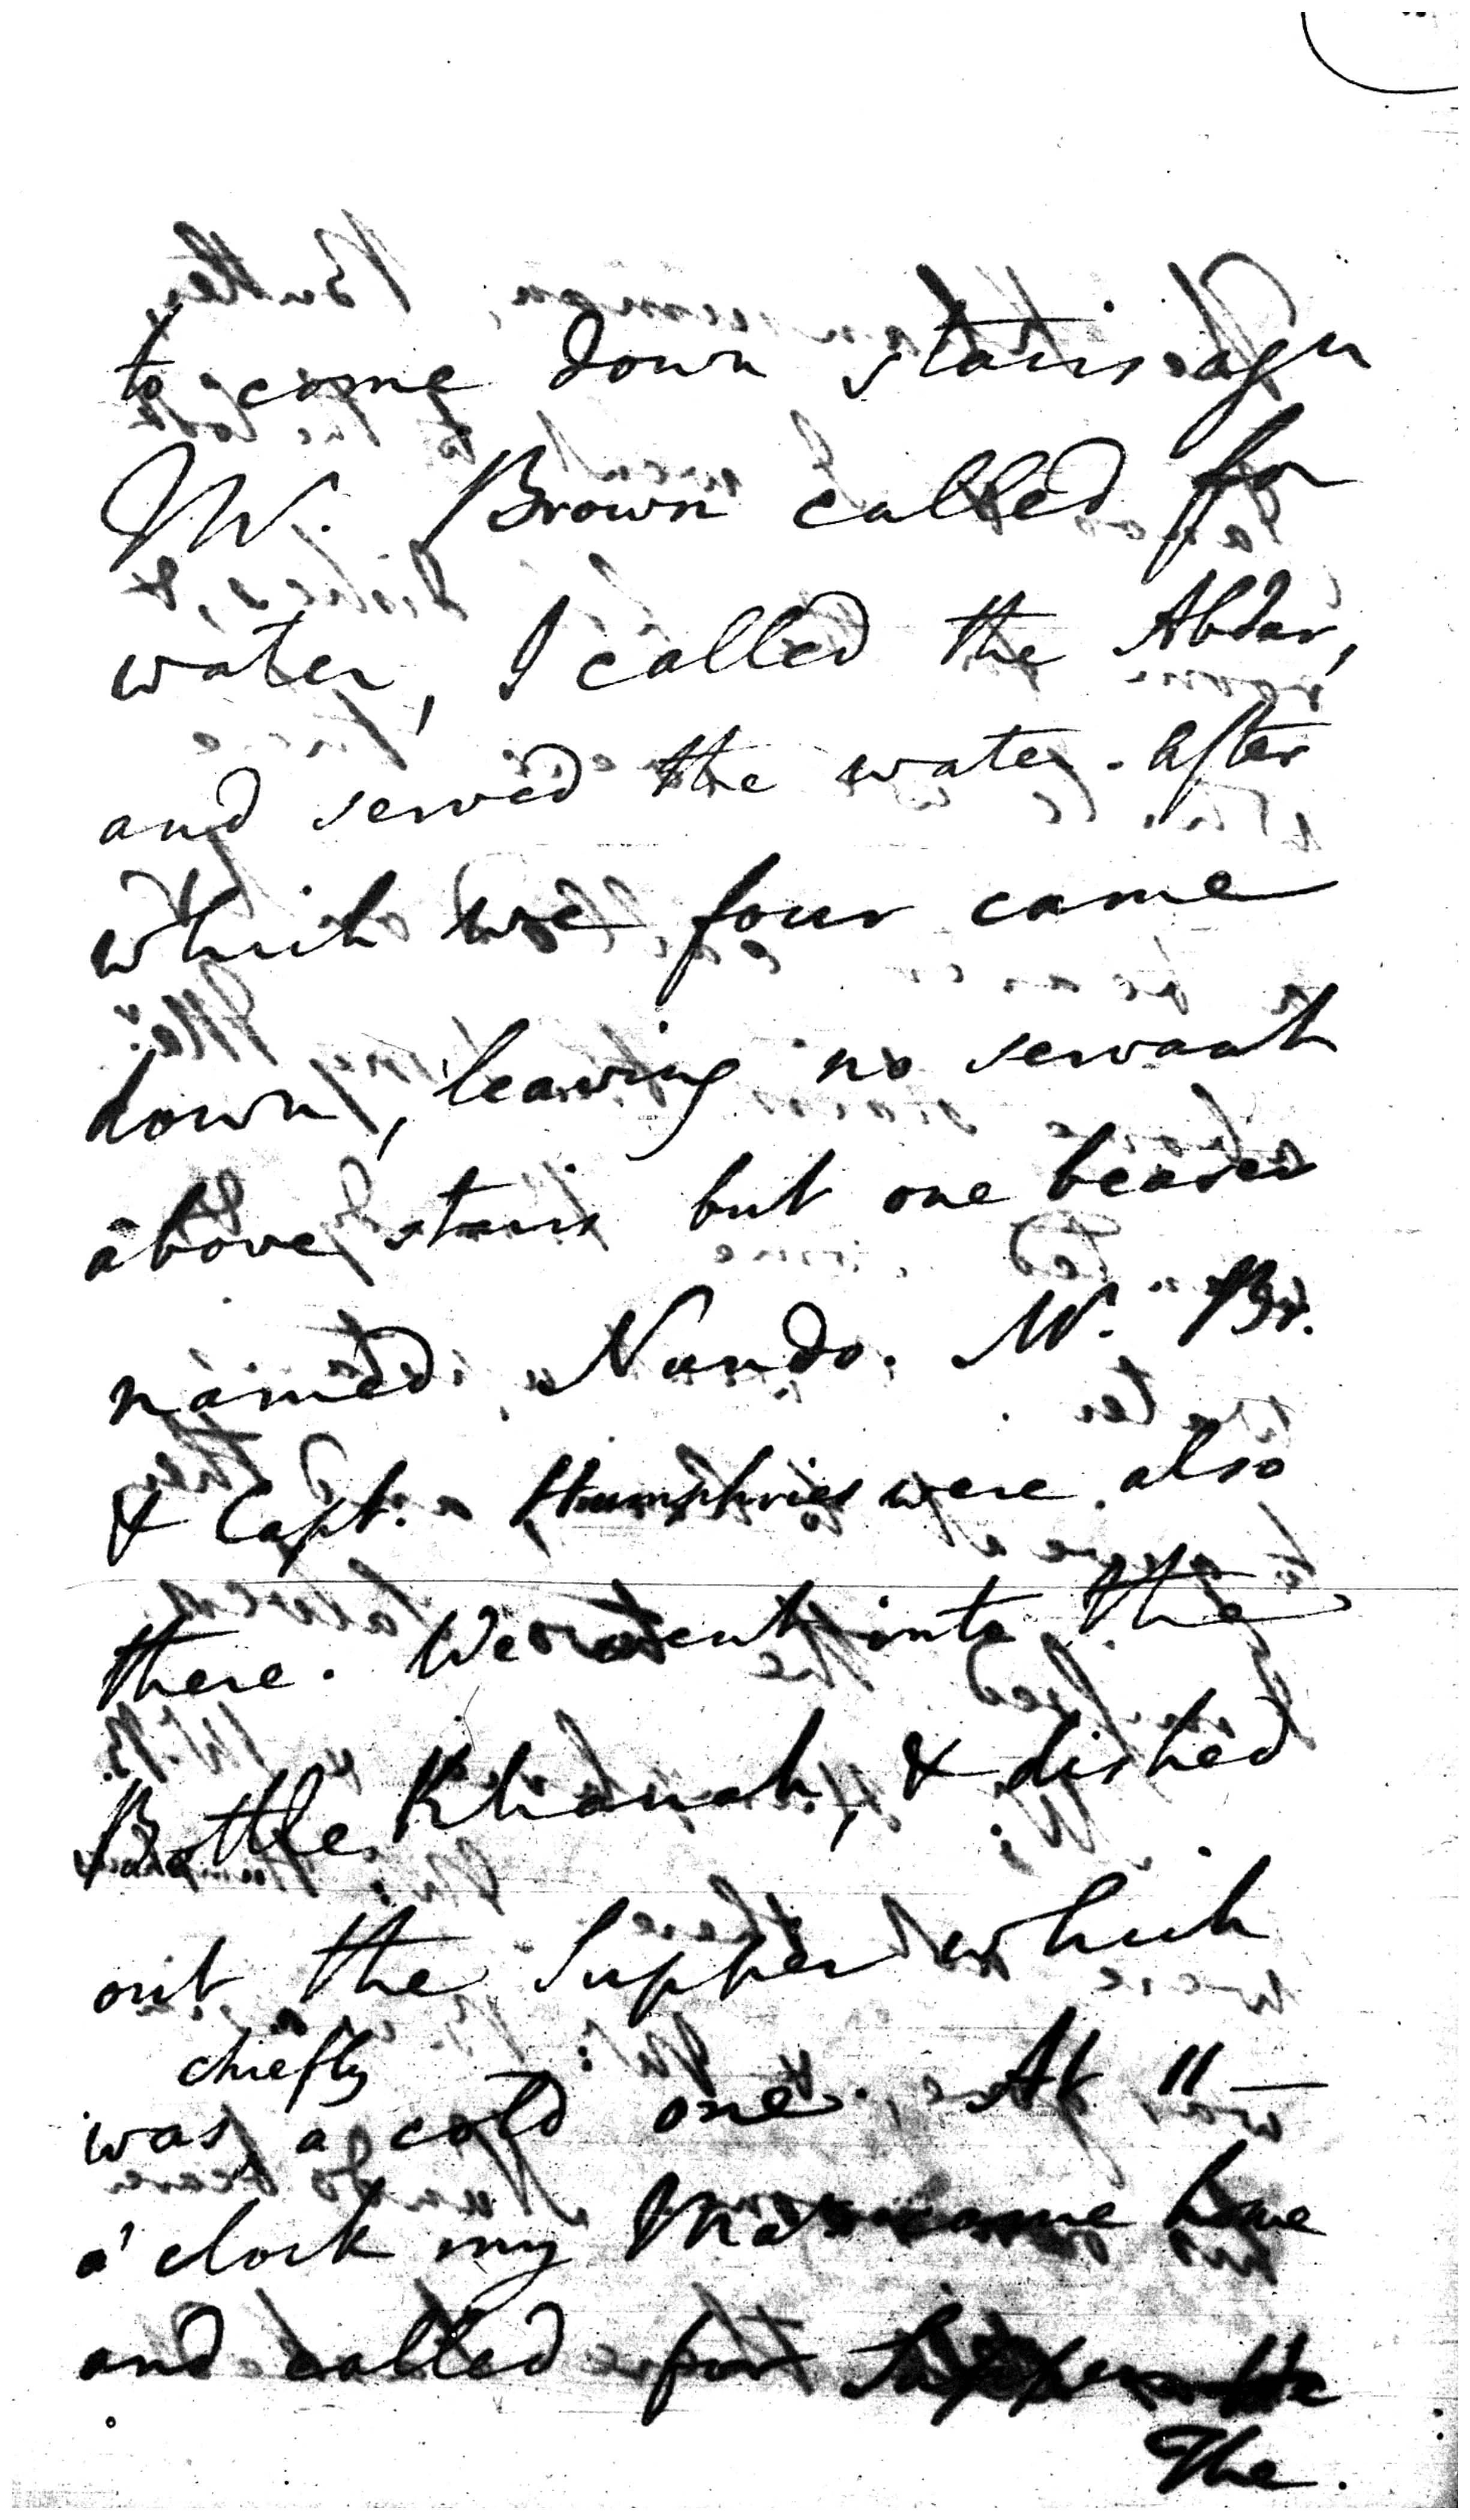 to come down stairs again
Mr. Brown called for
water, I called the Abdar,
and served the water. After
which we four came
down, leaving no servant
above stairs but one bearer
named Nundo. Mr. Br.
& Capt. Humphries were also
there. We went into the
Bottle Khanah, & dished
out the Supper which
chiefly
was a cold one. At 11
o'clock my Mar came home
and called for Supper. The
The.